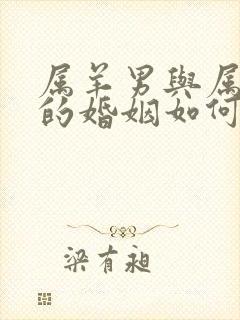 属羊男與属
的婚姻如何
梁有昶